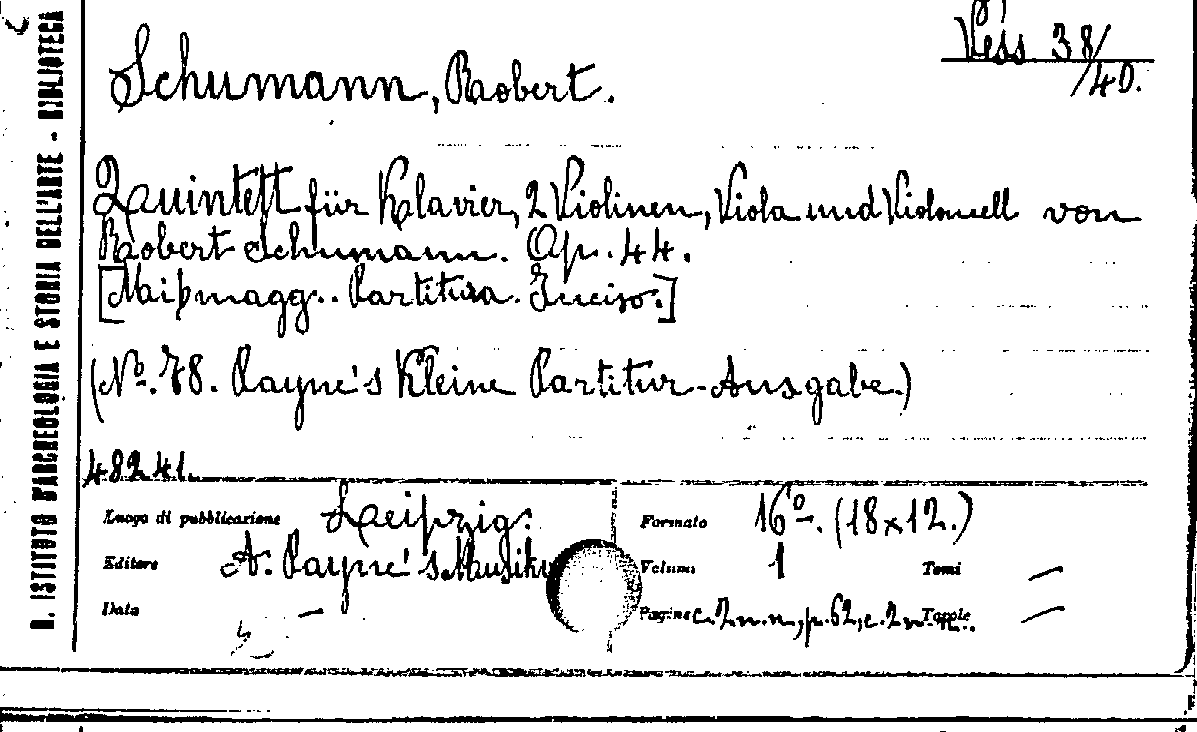 R. ISTITUTO D'ARCHEOLOGIA E STORIA DELL'ARTE - BIBLIOTECA
Vess 38/
/40.
Schumann, Robert.
Quintett für Klavier, 2 Violinen, Viola und Violoncell von
Robert Schumann. Op. 44.
[Mi♭magg. Partitura. Inciso.]
(Nº. 78. Payne's Kleine Partitur-Ausgabe.)
48241.
Luogo di pubblicazione Leipzig.
Formato 16º. (18x12.)
Editore A. Payne's Musikv
Volumi 1 Tomi —
Data —
Pagine c. 2 n.n., p. 62, c. 2 n.n. Tavole —